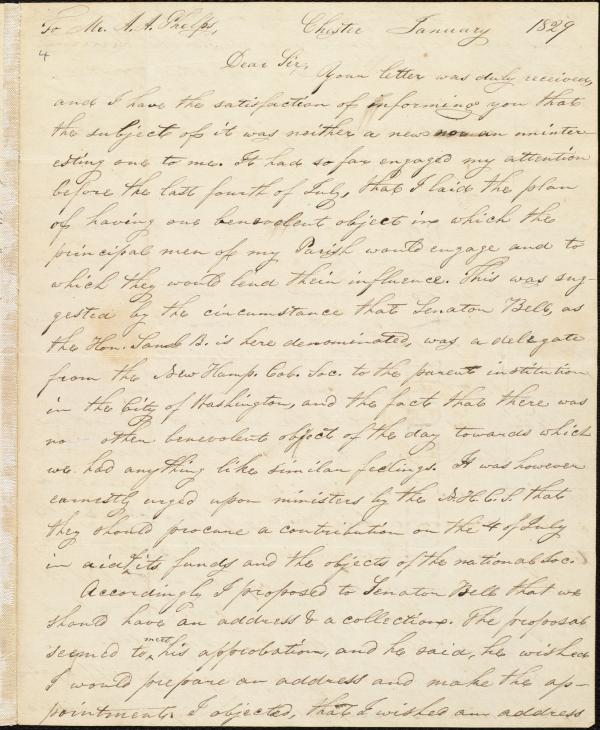 To Mr. A. A. Phelps, Chester January 1829
4
Dear Sir,
Your letter was duly received,
and I have the satisfaction of informing you that
the subject of it was neither a new nor an uninter-
esting one to me. It had so far engaged my attention
before the last fourth of July, that I laid the plan
of having one benevolent object in which the
principal men of my Parish would engage and to
which they would lend their influence. This was sug-
gested by the circumstance that Senator Bell, as
the Hon. Saml B. is here denominated, was a delegate
from the New Hamp. Col. Soc. to the parent institution
in the City of Washington, and the fact that there was
no other benevolent object of the day towards which
we had anything like similar feelings. It was however
earnestly urged upon ministers by the N. H. C. S. that
they should procure a contribution on the 4 of July
in aid of its funds and the objects of the national Soc.
Accordingly I proposed to Senator Bell that we
should have an address & a collection. The proposal
seemed to meet his approbation, and he said, he wished
I would prepare an address and make the ap-
pointment. I objected, that I wished an address